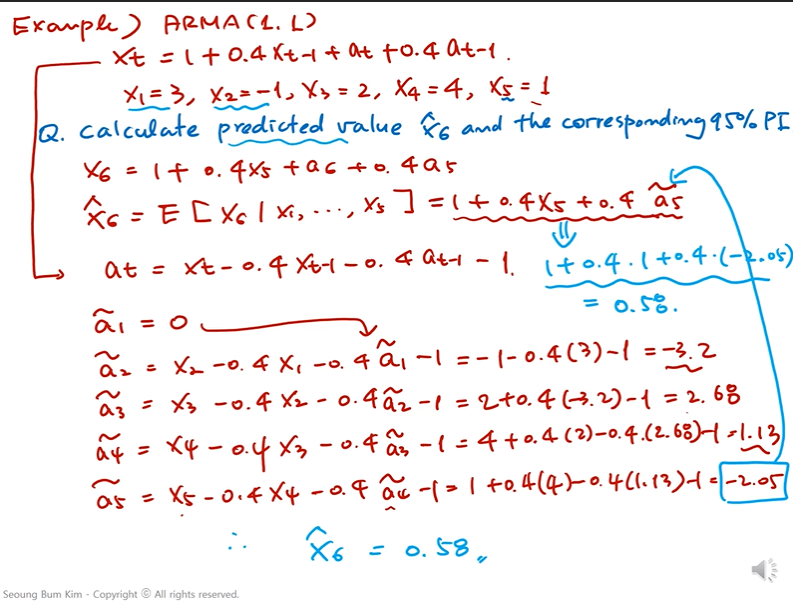 Example) ARMA(1.1)
Xt = 1+0.4Xt-1 + at +0.4 at-1.
X1=3, X2=-1, X3=2, X4=4, X5=1
Q. calculate predicted value X̂6 and the corresponding 95% PI
X6 = 1+ 0.4X5 + a6 + 0.4 a5
X̂6 = E[X6 | X1, ..., X5] = 1+0.4X5 +0.4 ã5
⇓
at = Xt - 0.4 Xt-1 - 0.4 at-1 - 1. 1+0.4·1+0.4·(-2.05)
= 0.58.
ã1 = 0
ã2 = X2 -0.4 X1 -0.4 ã1 -1 = -1-0.4(3)-1 = -3.2
ã3 = X3 -0.4 X2 - 0.4 ã2 -1 = 2+0.4(-3.2)-1 = 2.68
ã4 = X4 -0.4 X3 -0.4 ã3 -1 = 4+0.4(2)-0.4.(2.68)-1=1.13
ã5 = X5 -0.4X4 -0.4 ã4 -1= 1+0.4(4)-0.4(1.13)-1 = -2.05
∴ X̂6 = 0.58
Seoung Bum Kim - Copyright ⓒ All rights reserved.